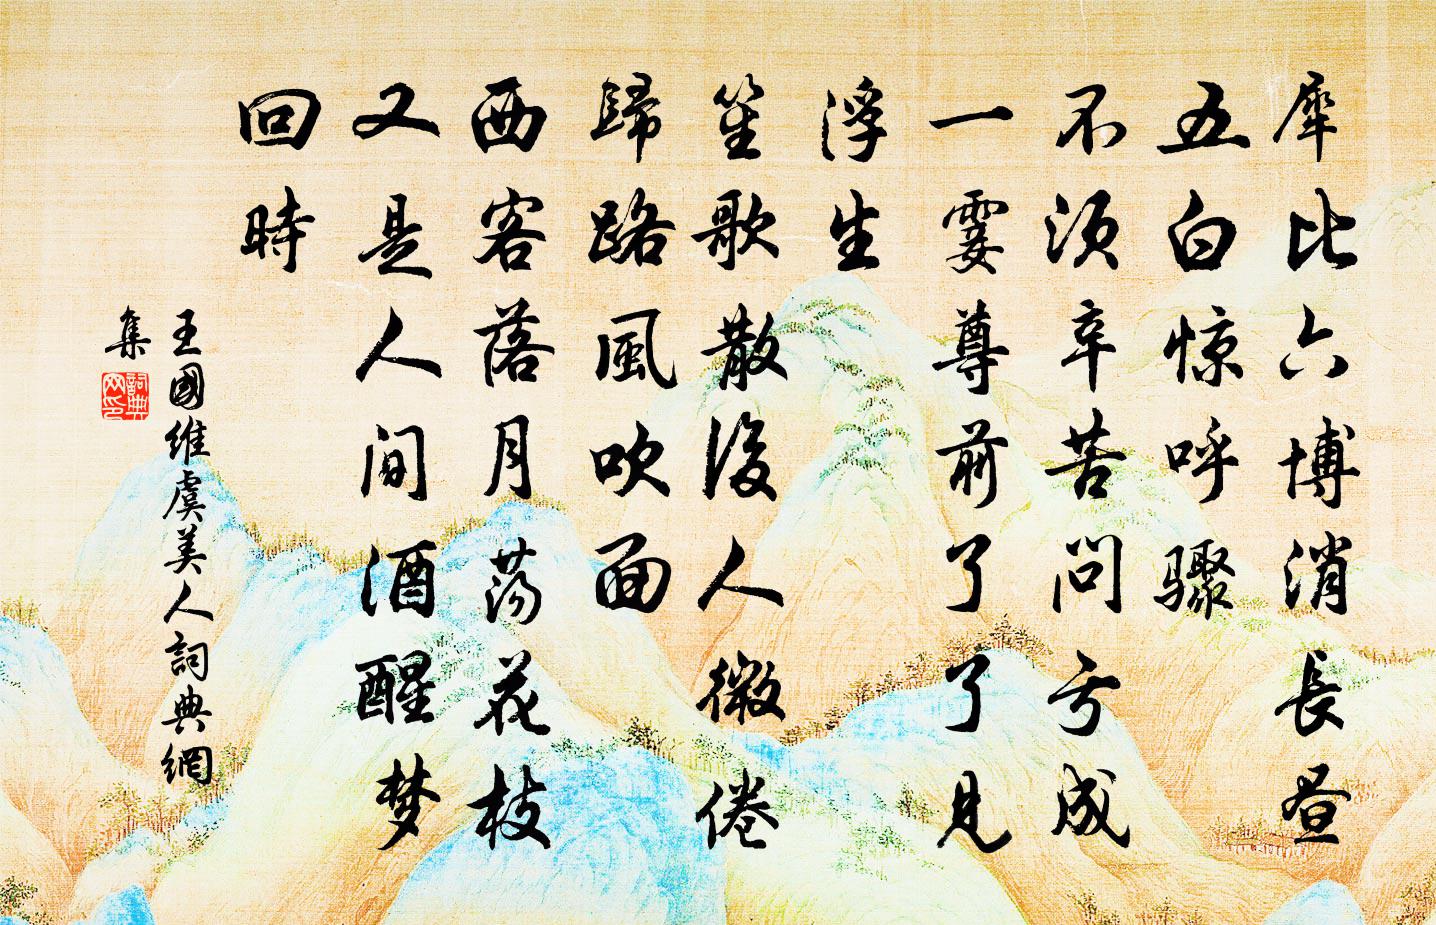 犀比六博消長昼
五白惊呼骤
不須辛苦問亏成
一霎尊前了了見
浮生
笙歌散後人微倦
歸路風吹面
西客落月荡花枝
又是人間酒醒梦
回時
王國維虞美人詞典網
集
詞典
网印